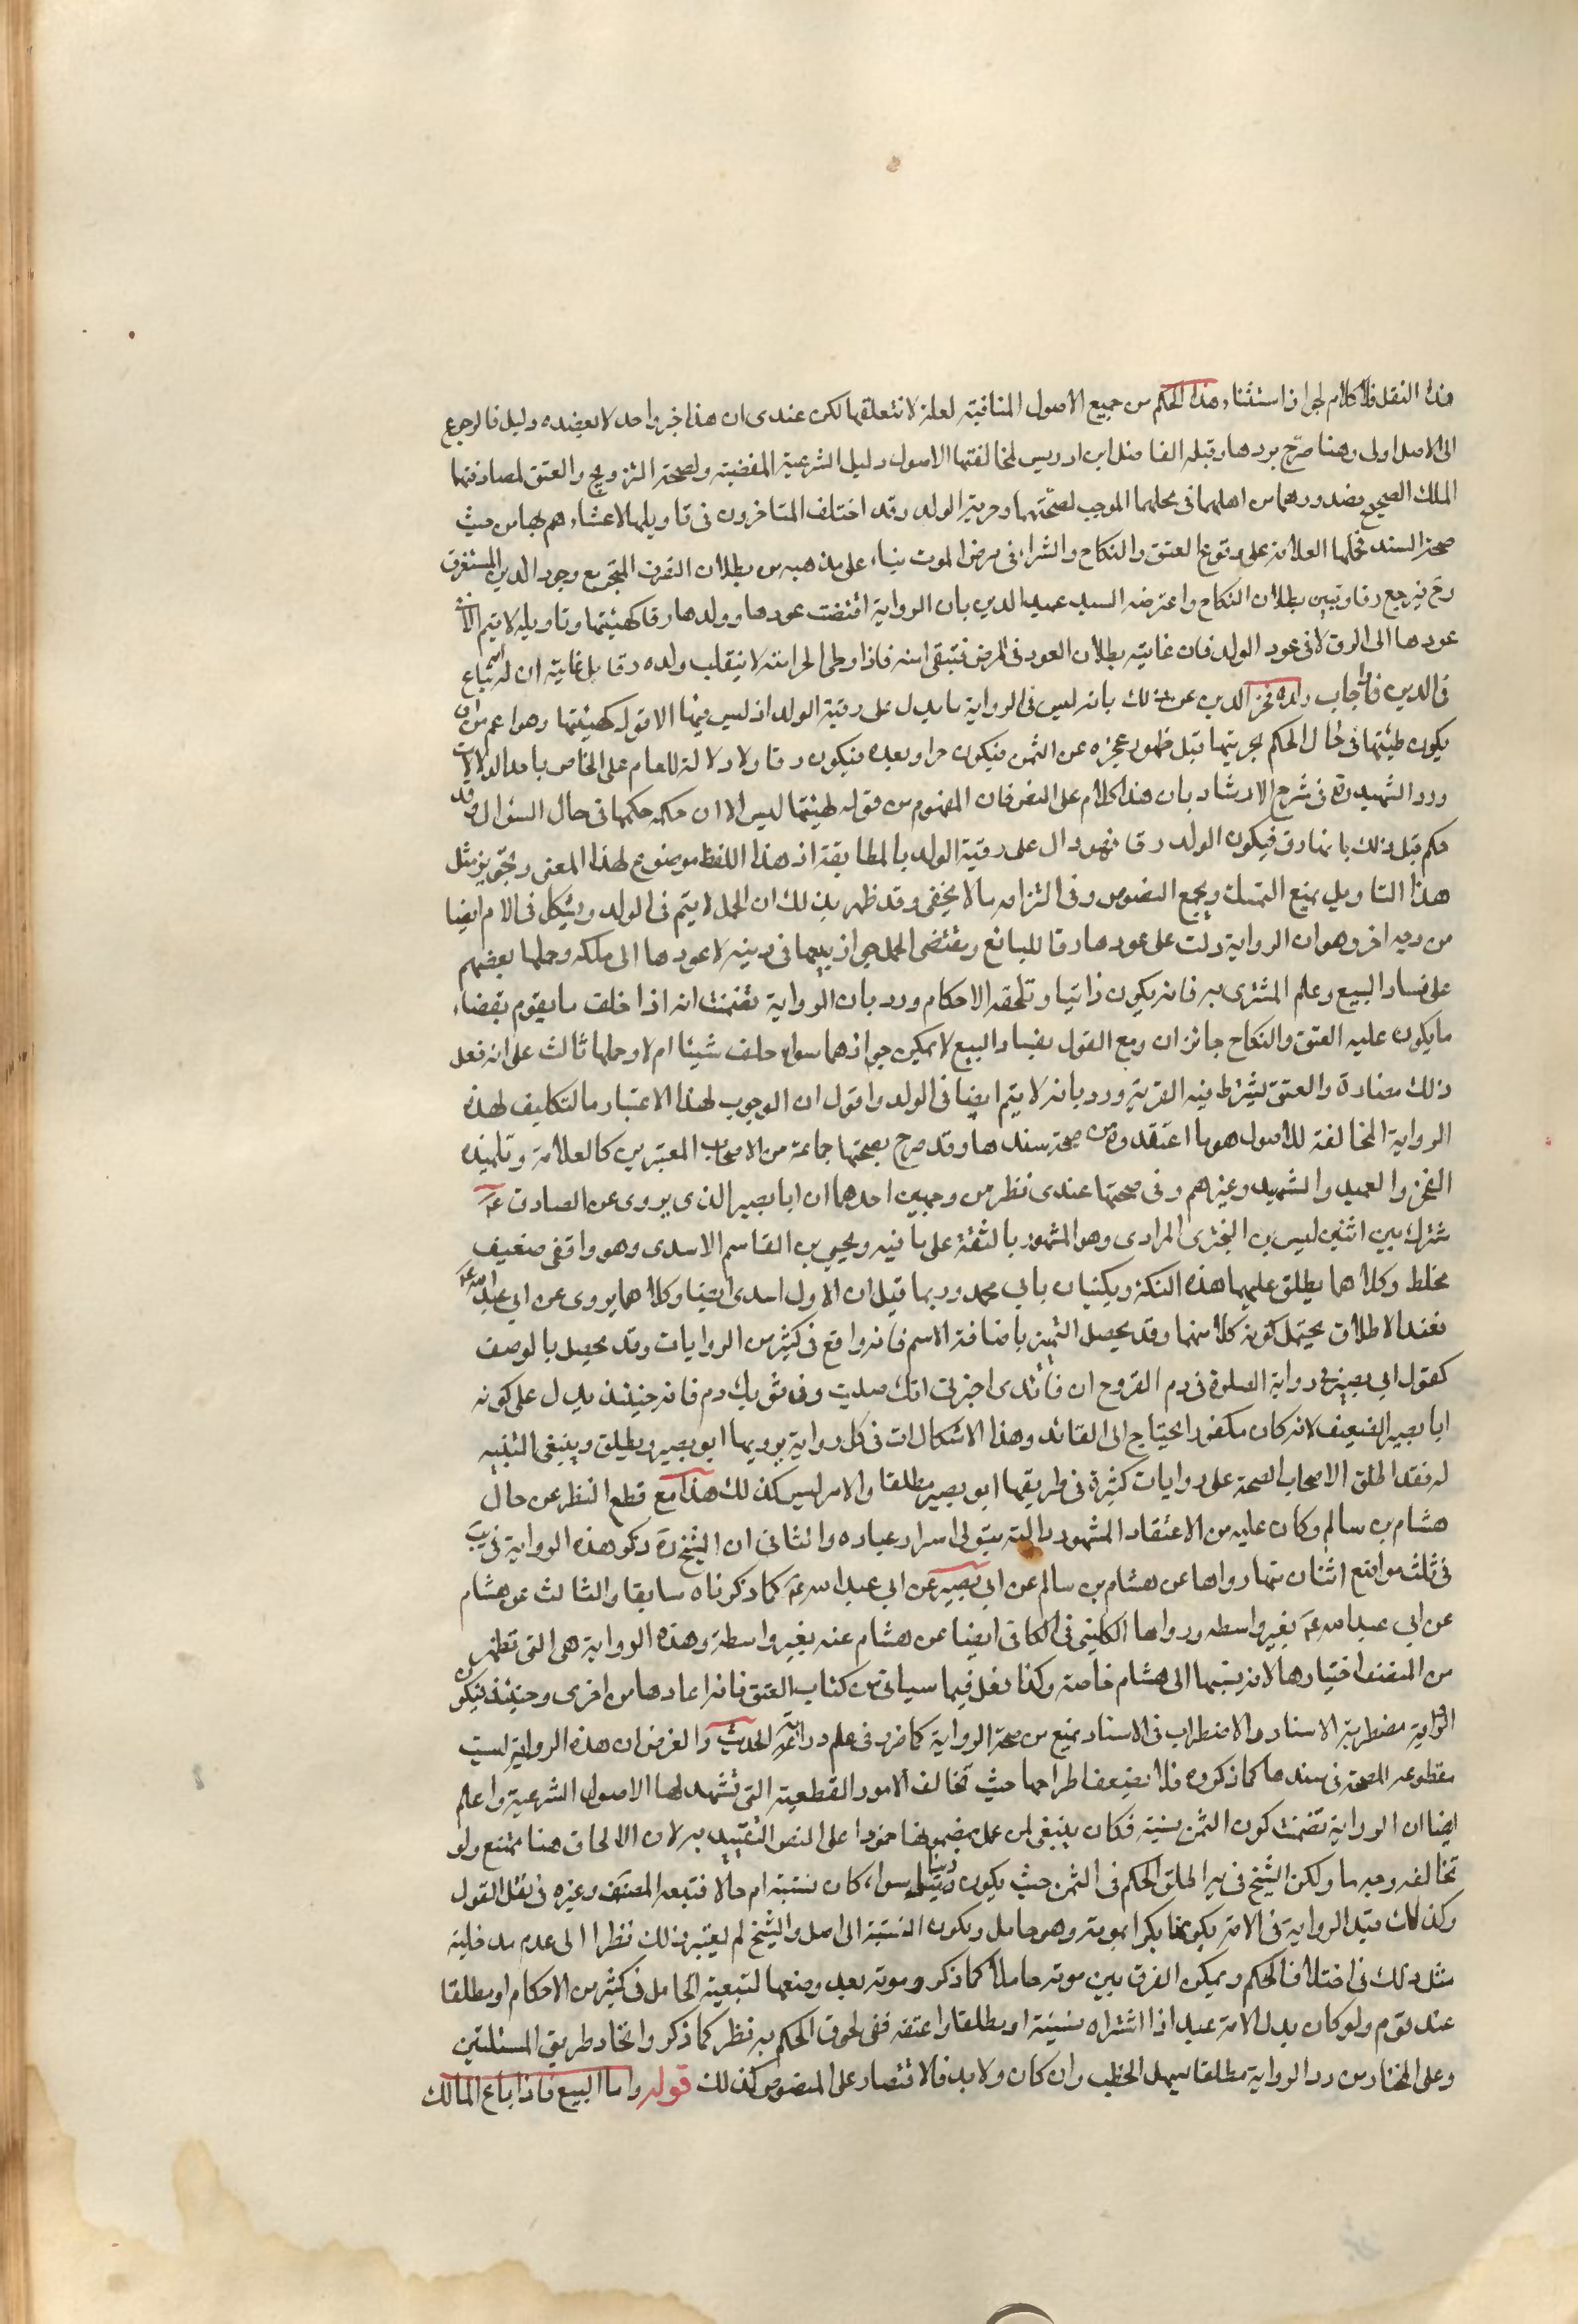 هذا النقل فلا كلام لجواز استثناء هذا الحكم من جميع الاصول المنافية لعلة لا نتعلقها لكن عندى ان هذا خبر واحد لا يعضده دليل فالرجوع
الى الاصل اولى وهنا صرّح بردها وقبله الفاضل ابن ادريس لمخالفتها الاصول دليل الشرعية المفضية ولصحة التزويج والعتق لمصادفتها
الملك الصحيح وصدورهما من اهلهما فى محلهما الموجب لصحتهما وحرية الولد وقد اختلف المتاخرون فى تاويلها لاعتنائهم بها من حيث
صحة السند فحملها العلامة على وقوع العتق والنكاح والشراء فى مرض الموت بناء على مذهبه من بطلان التصرف المنجز مع وجود الدين المستغرق
وح فيرجع رقا وتبين بطلان النكاح واعترضه السيد عميد الدين بان الرواية اقتضت عودها وولدها رقا كهيئتها وتاويله لا يتم الا فى
عودها الى الرق لا فى عود الولد فان غايته بطلان العود فى المرض فتبقى امته فاذا وطى الحر امته لا ينقلب ولده رقا بل غايته ان امه تباع
فى الدين فاجاب ولده فخر الدين عن ذلك بانه ليس فى الرواية ما يدل على رقية الولد اذ ليس فيها الا قوله كهيئتها وهو اعم من ان
يكون كهيئتها فى حال الحكم بحريتها قبل ظهور عجزه عن الثمن فيكون حرا وبعده فيكون رقا ولا دلالة للعام على الخاص باحد الدلالات
ورد الشهيد ره فى شرح الارشاد بان هذا كلام على النص فان المفهوم من قوله كهيئتها ليس الا ان حكمه حكمها فى حال السؤال وقد
حكم قبل ذلك بانها رق فيكون الولد رقا فهو دال على رقية الولد بالمطابقة اذ هذا اللفظ موضوع لهذا المعنى وتجويز مثل
هذا التاويل يمنع التمسك بجميع النصوص وفى التزامه ما لا يخفى وقد ظهر بذلك ان الحمل لا يتم فى الولد ويشكل فى الام ايضا
من وجه اخر وهو ان الرواية دلت على عودها رقا للبائع ومقتضى الحمل جواز بيعها فى دينه لا عودها الى ملكه وحملها بعضهم
على فساد البيع وعلم المشترى به فانه يكون زانيا وتلحقه الاحكام ورد بان الرواية تضمنت انه اذا خلف ما يقوم بقضاء
ما يكون عليه العتق والنكاح جائزان ومع القول بفساد البيع لا يمكن جوازهما سواء خلف شيئا ام لا وحملها ثالث على انه فعل
ذلك مضارة والعتق يشترط فيه القربة ورد بانه لا يتم ايضا فى الولد واقول ان الموجب لهذا الاعتبار والتكليف لهذه
الرواية المخالفة للاصول هو ما اعتقدوه من صحة سندها وقد صرح بصحتها جماعة من الاصحاب المعتبرين كالعلامة وتلميذه
الفخر والعميد والشهيد وغيرهم وفى صحتها عندى نظر من وجهين احدهما ان ابا بصير الذى يروى عن الصادق ع
مشترك بين اثنين ليث بن البخترى المرادى وهو المشهور بالثقة على ما فيه ويحيى بن القاسم الاسدى وهو واقفى ضعيف
مخلط وكلاهما يطلق عليهما هذه الكنية ويكنيان بابى محمد وربما قيل ان الاول اسدى ايضا وكلاهما يروى عن ابى عبد الله ع
فعند الاطلاق يحتمل كونه كلا منهما وقد يحصل التميز باضافة الاسم فانه واقع فى كثير من الروايات وقد يحصل بالوصف
كقول ابى بصير فى رواية الصلوة فى دم القروح ان قائدى اخبرنى انك صليت وفى ثوبك دم فانه حينئذ يدل على كونه
ابا بصير الضعيف لانه كان مكفوفا يحتاج الى القائد وهذا الاشكال ات فى كل رواية يرويها ابو بصير ويطلق وينبغى التنبيه
له فقد اطلق الاصحاب الصحة على روايات كثيرة فى طريقها ابو بصير مطلقا والامر ليس كذلك هذا مع قطع النظر عن حال
هشام بن سالم وكان عليه من الاعتقاد المشهور والله يتولى اسرار عباده والثانى ان الشيخ ره ذكر هذه الرواية فى يب
فى ثلثة مواضع اثنان منها رواها عن هشام بن سالم عن ابى بصير عن ابى عبد الله ع كما ذكرناه سابقا والثالث عن هشام
عن ابى عبد الله ع بغير واسطة ورواها الكلينى فى الكافى ايضا عن هشام عنه بغير واسطة وهذه الرواية هى التى تظهر
من المصنف اختيارها لانه ينسبها الى هشام خاصة وكذا فعل فيما سياتى من كتاب العتق فانه اعادها مرة اخرى وحينئذ فيكون
الرواية مضطربة الاسناد والاضطراب فى الاسناد يمنع من صحة الرواية كما قرر فى علم دراية الحديث والغرض ان هذه الرواية ليست
مقطوعة الصحة فى سندها كما ذكروه فلا يضعف اطراحها حيث تخالف الامور القطعية التى تشهد لها الاصول الشرعية واعلم
ايضا ان الرواية تضمنت كون الثمن نسية فكان ينبغى لمن عمل بمضمونها جمودا على النص التقييد به لان الالحاق هنا ممتنع ولو
تخالفه وجه ما ولكن الشيخ فى ية اطلق الحكم فى الثمن حيث يكون دينا سواء كان نسيئة ام حالا فتبعه المصنف وغيره فى نقل القول
وكذلك قيد الرواية فى الامة بكونها بكرا بموته وهو حامل ويكون النسبة الى اصل والشيخ لم يعتبر ذلك نظرا الى عدم مدخلية
مثل ذلك فى اختلاف الحكم ويمكن الفرق بين موته حاملا كما ذكر وموته بعد وضعها لتبعية الحامل فى كثير من الاحكام او مطلقا
عند قوم ولو كان بدل الامة عبد اذا اشتراه نسيئة او مطلقا واعتقه ففى لحوق الحكم به نظر كما ذكر واتحاد طريق المسئلتين
وعلى المختار من رد الرواية مطلقا يسهل الخطب وان كان ولا بد فالاقتصار على المنصوص كذلك قوله واما البيع فاذا باع المالك